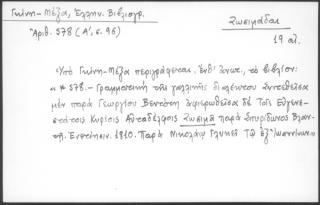 Γκίνη-Μέξα, Ἑλλην. Βιβλιογρ.
Ἀριθ. 578 (Α', σ. 96)
Ζωσιμάδαι
19 αἰ.
Ὑπὸ Γκίνη-Μέξα περιγράφεται, ἔνθ' ἄνωτ., τὸ βιβλίον:
«*578.- Γραμματικὴ τῆς γαλλικῆς διαλέκτου Συντεθεῖσα
μὲν παρὰ Γεωργίου Βεντότη ἀφιερωθεῖσα δὲ Τοῖς Εὐγενε-
στάτοις Κυρίοις Αὐταδέλφοις Ζωσιμᾶ παρὰ Σπυρίδωνος Βλαν-
τῆ. Ἐνετίησιν. 1810. Παρὰ Νικολάῳ Γλυκεῖ Τῷ ἐξ Ἰωαννίνων»